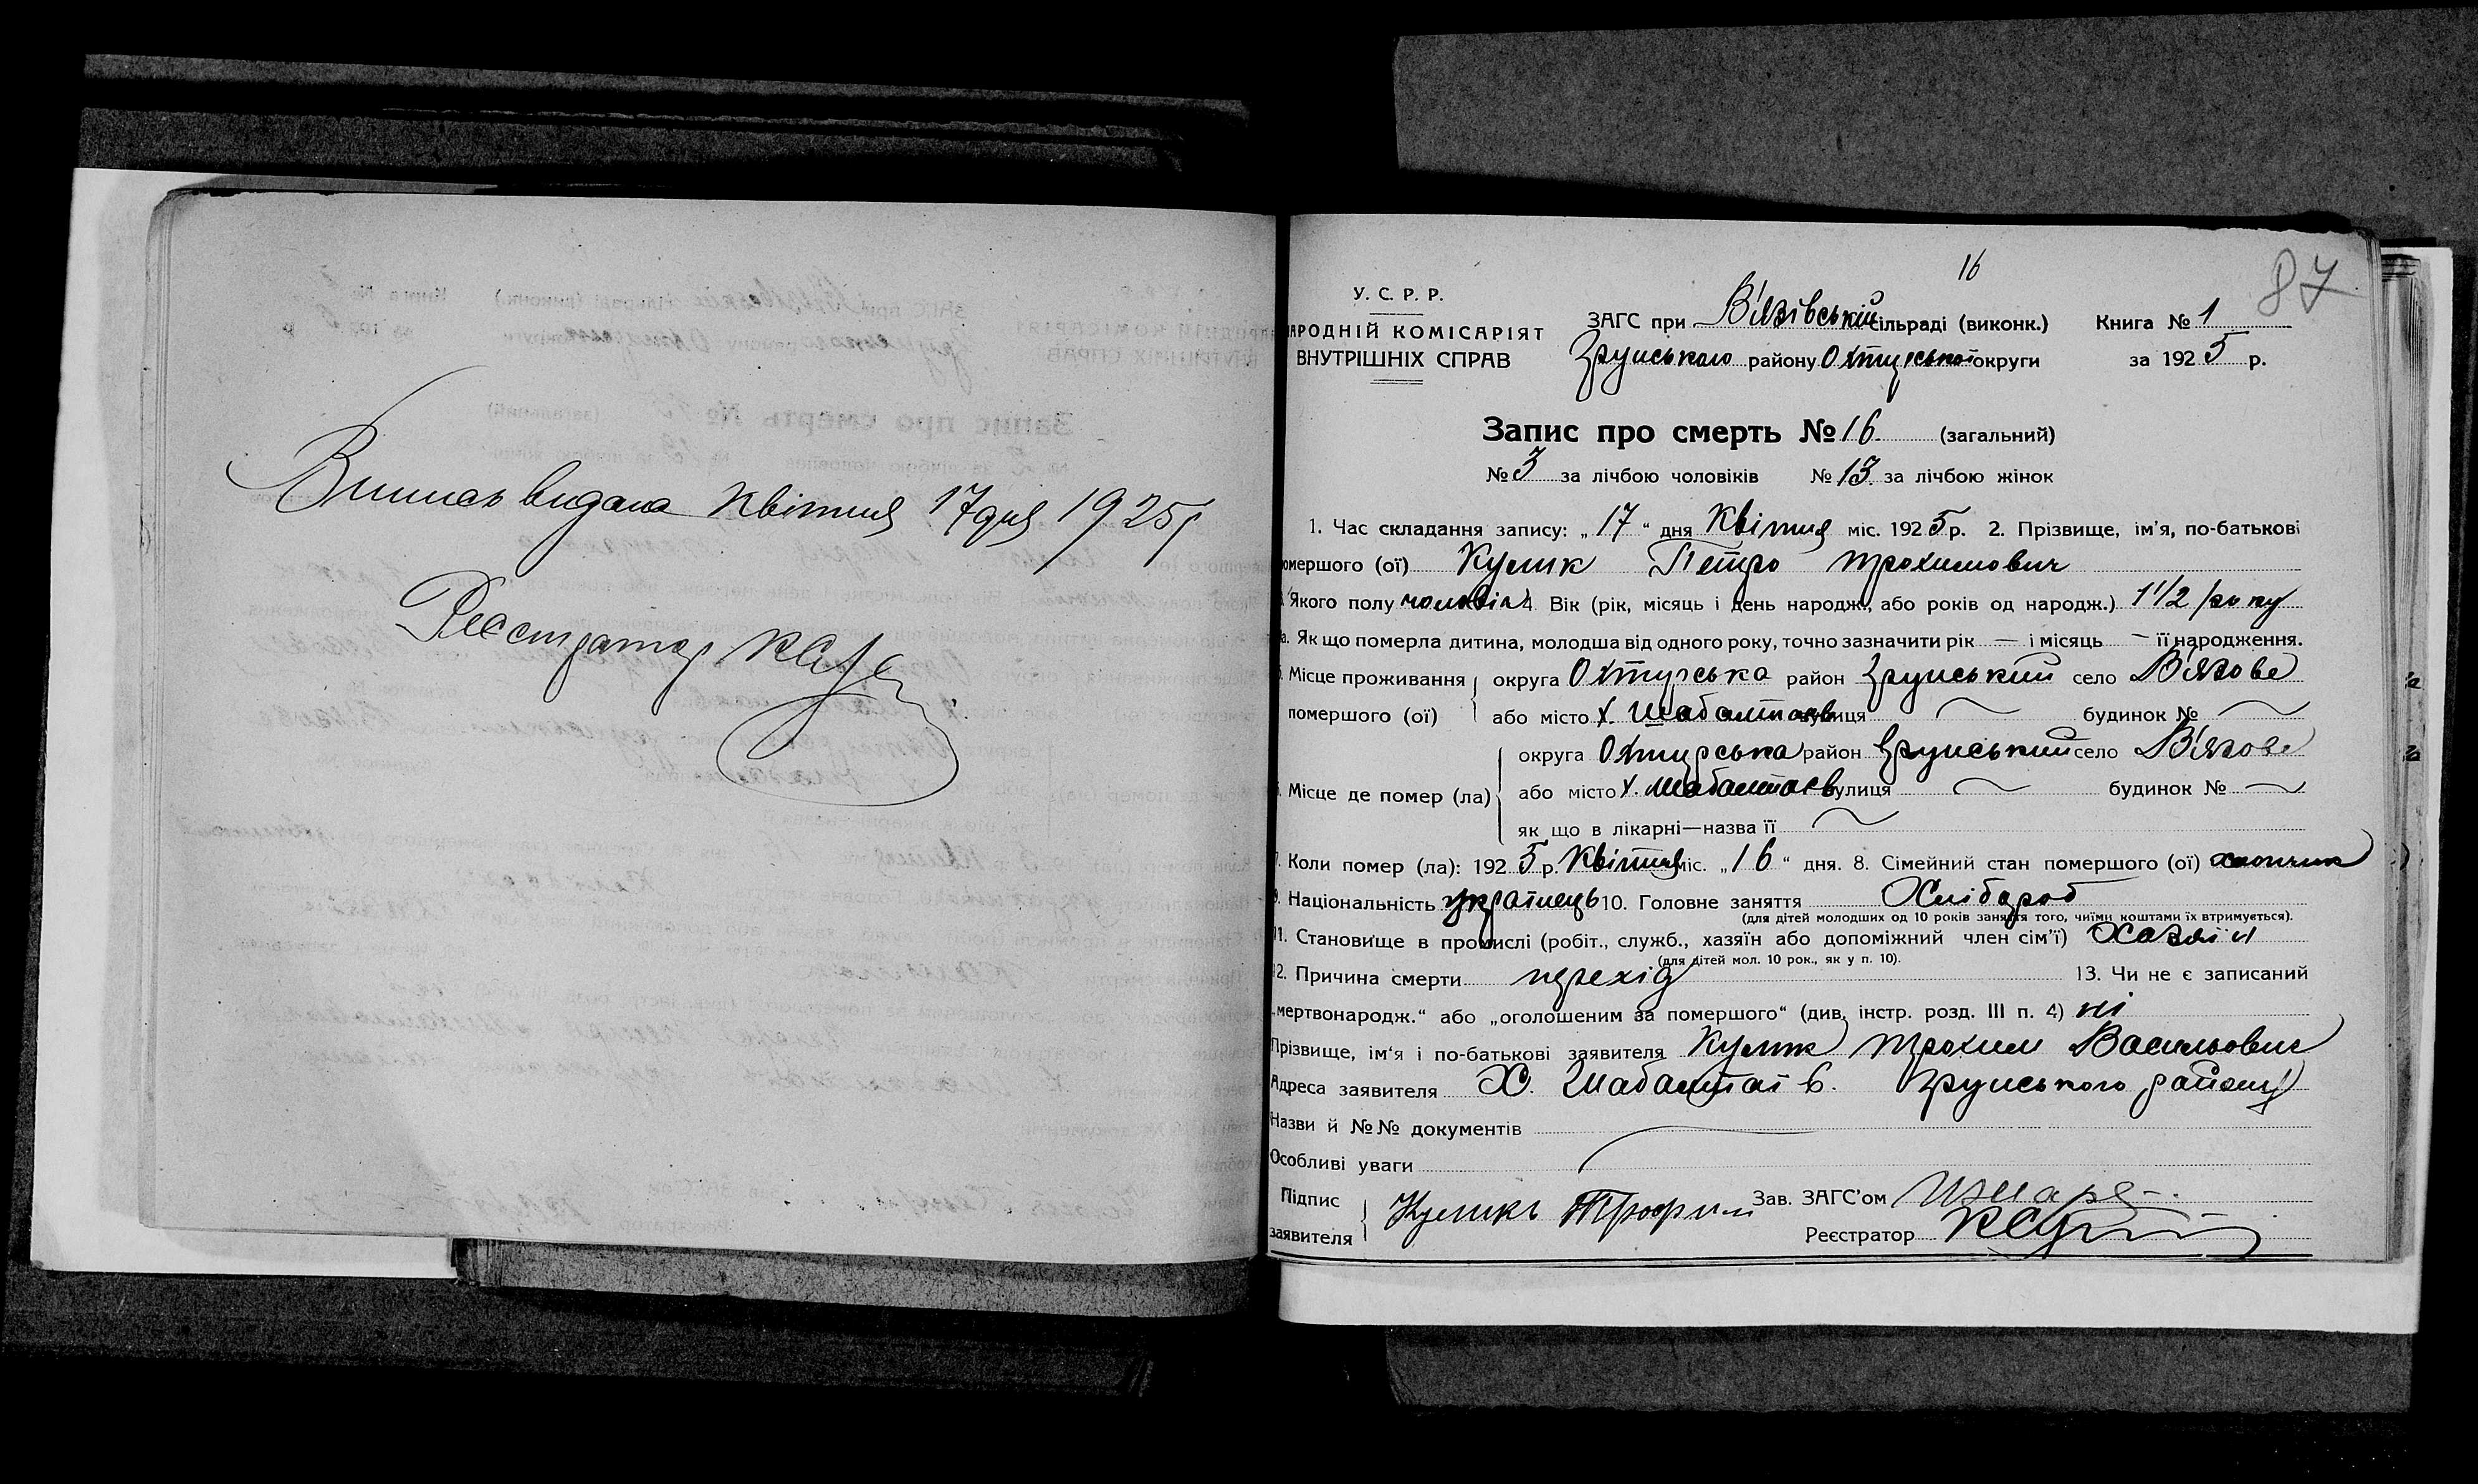 Випись видана Квітня 17 дня 1925 р
Реєстратор
16
87
У. С. Р. Р.
АРОДНІЙ КОМІСАРІЯТ
ВНУТРІШНІХ СПРАВ
ЗАГС при В'язівській сільраді (виконк.) Книга № 1
Грунського району Охтирської округи за 1925 р.
Запис про смерть № 16. (загальний)
№ 3 за лічбою чоловіків № 13 за лічбою жінок
1. Час складання запису: „17“ дня Квітня міс. 1925 р. 2. Прізвище, ім'я, по-батькові
омершого (ої) Кулик Петро Трохимович
Якого полу чоловік 4. Вік (рік, місяць і день народж., або років од народж.) 1 1/2 року
а. Як що померла дитина, молодша від одного року, точно зазначити рік — і місяць — її народження.
Місце проживання округа Охтирська район Грунський село В'язове
помершого (ої) або місто х. Шабалтаєв вулиця будинок №
округа Охтирська район Грунський село В'язове
Місце де помер (ла) або місто х. Шабалтаєв вулиця будинок №
як що в лікарні—назва її
Коли помер (ла): 1925 р. Квітня міс. „16“ дня. 8. Сімейний стан помершого (ої) хлопчик
9. Національність українець 10. Головне заняття Хлібороб
(для дітей молодших од 10 років заняття того, чиїми коштами їх втримується).
11. Становище в промислі (робіт., служб., хазяїн або допоміжний член сім'ї) Хазяїн
(для дітей мол. 10 рок., як у п. 10).
12. Причина смерти перехід 13. Чи не є записаний
„мертвонародж.“ або „оголошеним за помершого“ (див. інстр. розд. III п. 4) ні
Прізвище, ім'я і по-батькові заявителя Кулик Трохим Васильович
Адреса заявителя Х. Шабалтаїв. Грунського району
Назви й №№ документів
Особливі уваги
Підпис
заявителя Куликъ Трофим Зав. ЗАГС'ом
Реєстратор